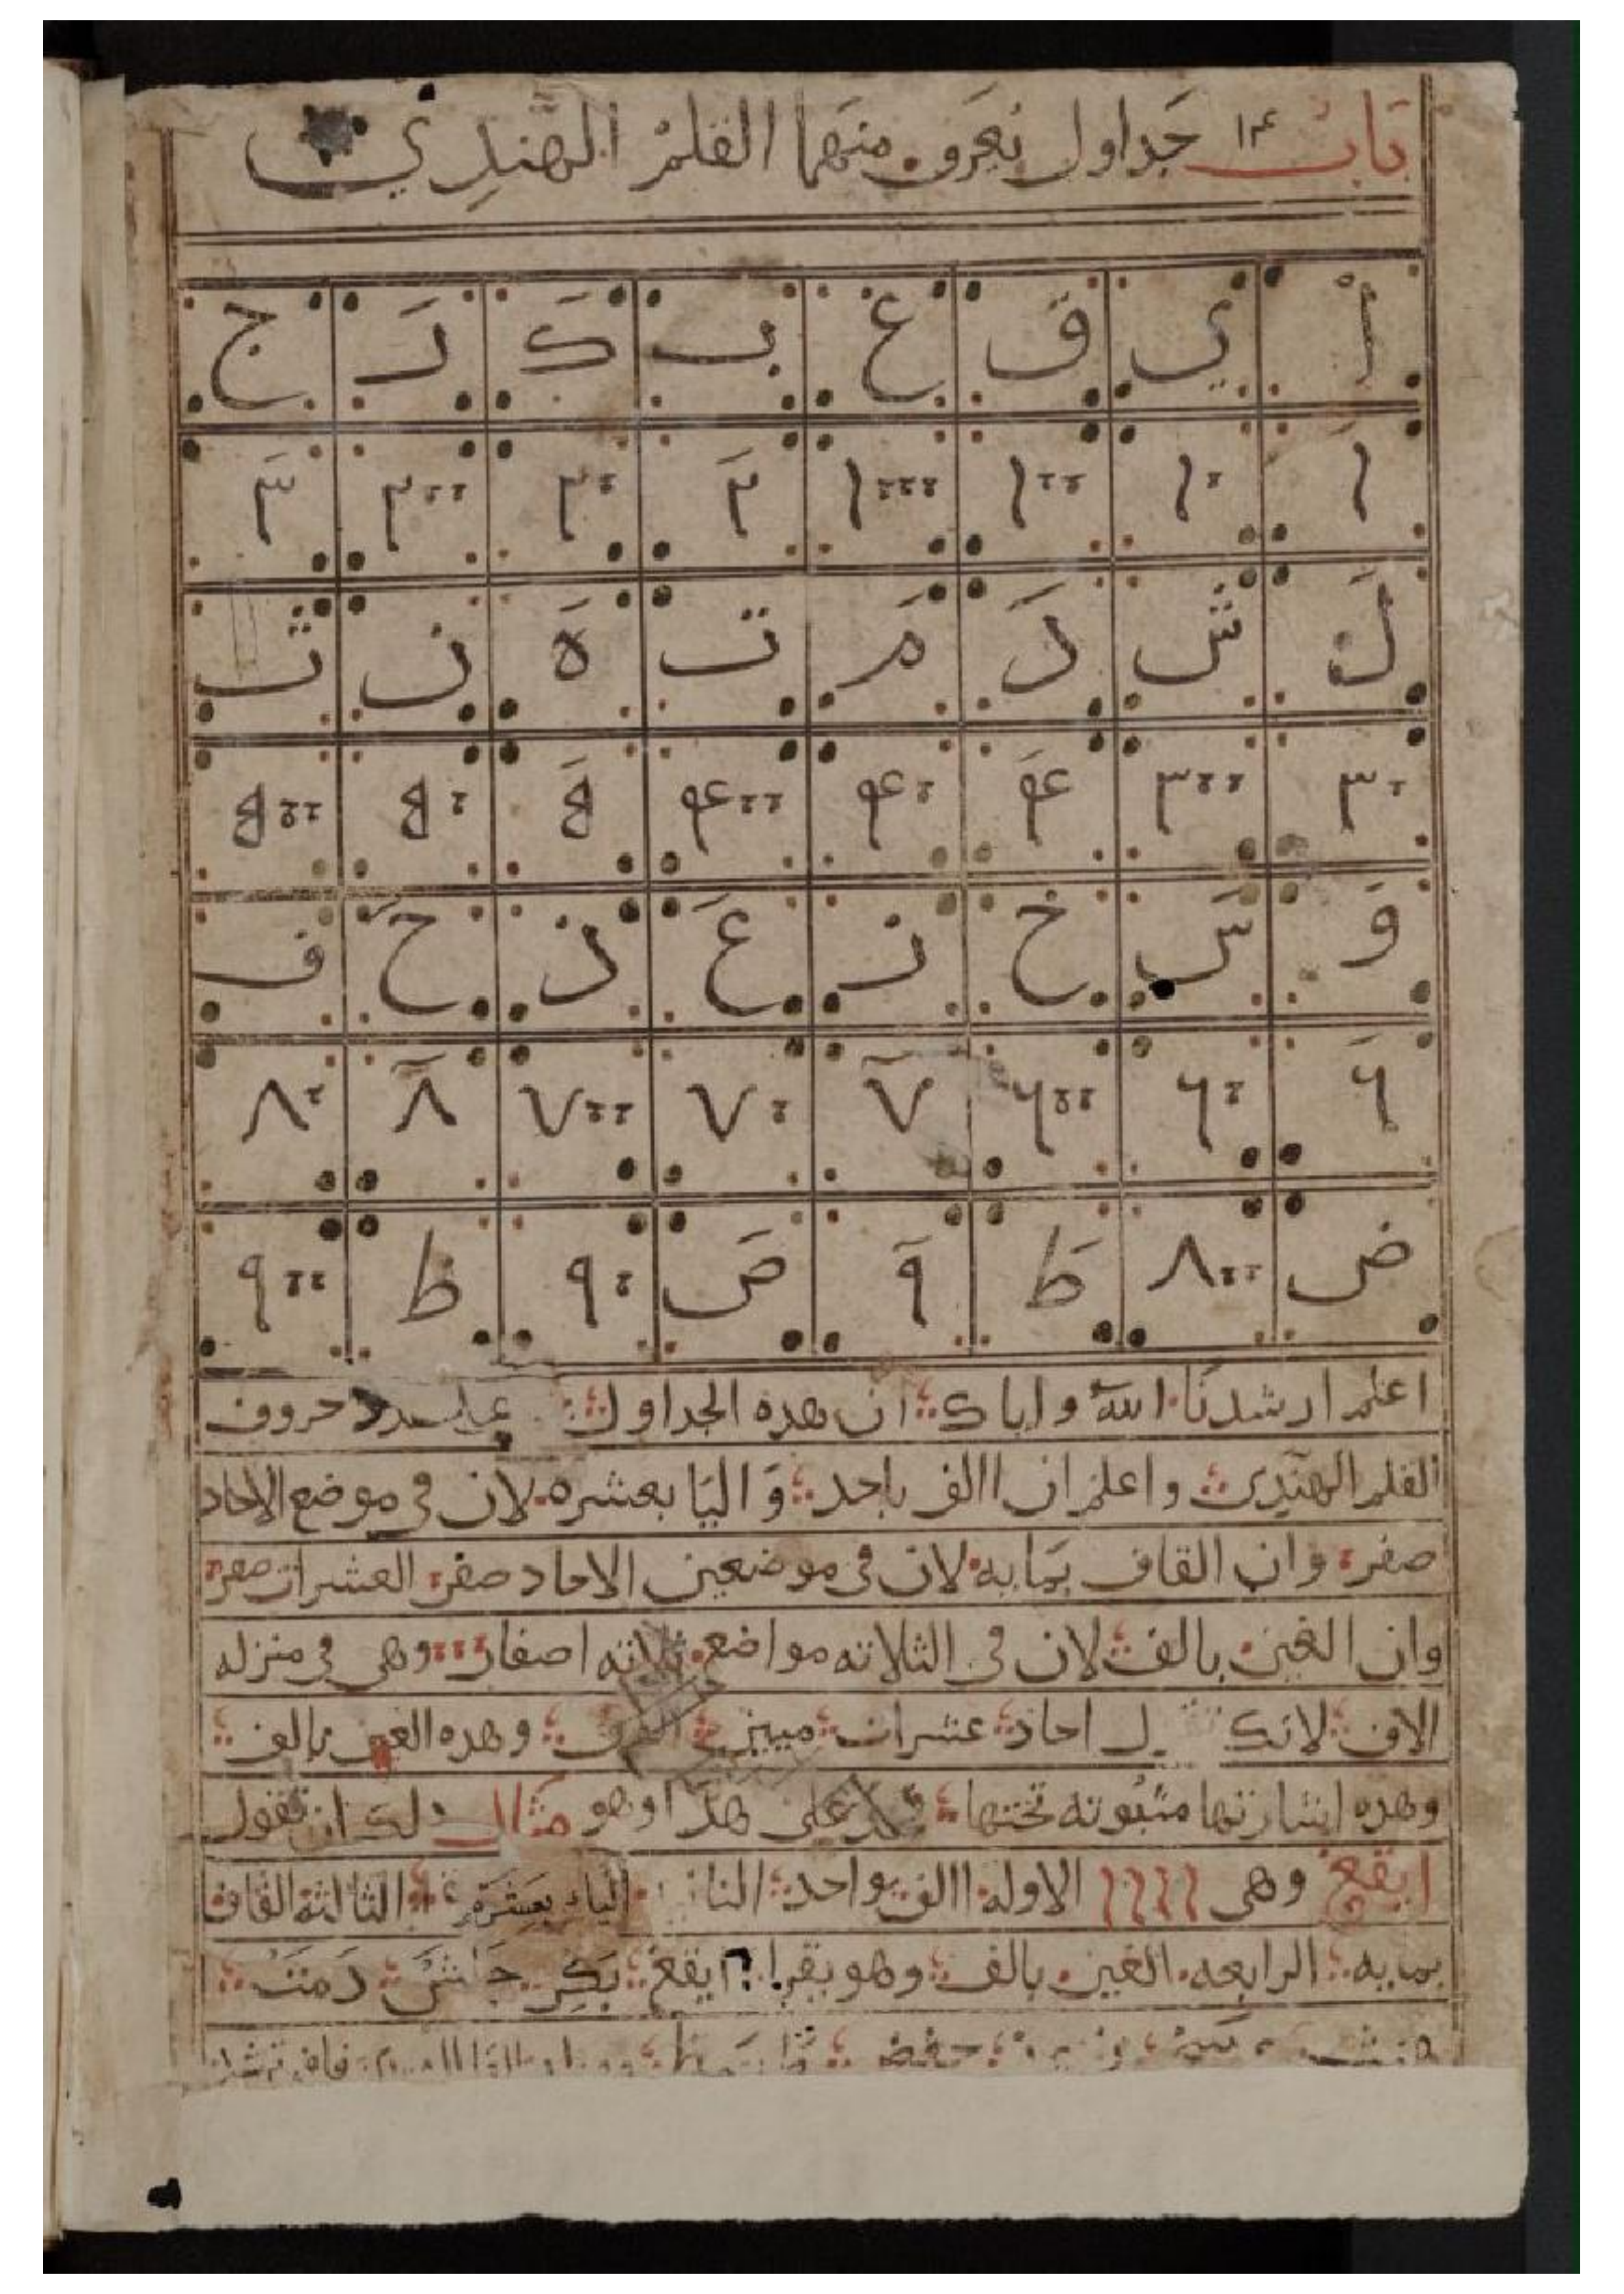 باب ١٤ جداول نعرف منهما القلم الهندي
أ ي ق غ ب ك ر ج
١ ١٠ ١٠٠ ١٠٠٠ ٢ ٢٠ ٢٠٠ ٣
ل ش د م ت ه ن ث
٣٠ ٣٠٠ ٤ ٤٠ ٤٠٠ ٥ ٥٠ ٥٠٠
و س خ ز ع ذ ح ف
٦ ٦٠ ٦٠٠ ٧ ٧٠ ٧٠٠ ٨ ٨٠
ض ٨٠٠ ط ٩ ص ٩٠ ظ ٩٠٠
اعلم ارشدنا الله واياك ان هده الجداول حروف
القلم الهندي واعلم ان الالف باحد واليا بعشره لان في موضع الاحاد
صفر وان القاف بمايه لان في موضعين الاحاد صفر العشرات صفر
وان الغين بالف لان في الثلاثه مواضع ثلاثه اصفار وهي في منزله
الاف احاد عشرات وهده الغين بالف
وهده اشارتها مثبوته تحتها على هدا وهو مثال دلك ان تقول
ايقغ وهي ١١١١ الاوله الالف بواحد الياء بعشرة الثالثة القاف
بمايه الرابعه الغين بالف وهو يقرا ايقغ بكر جلش دمت